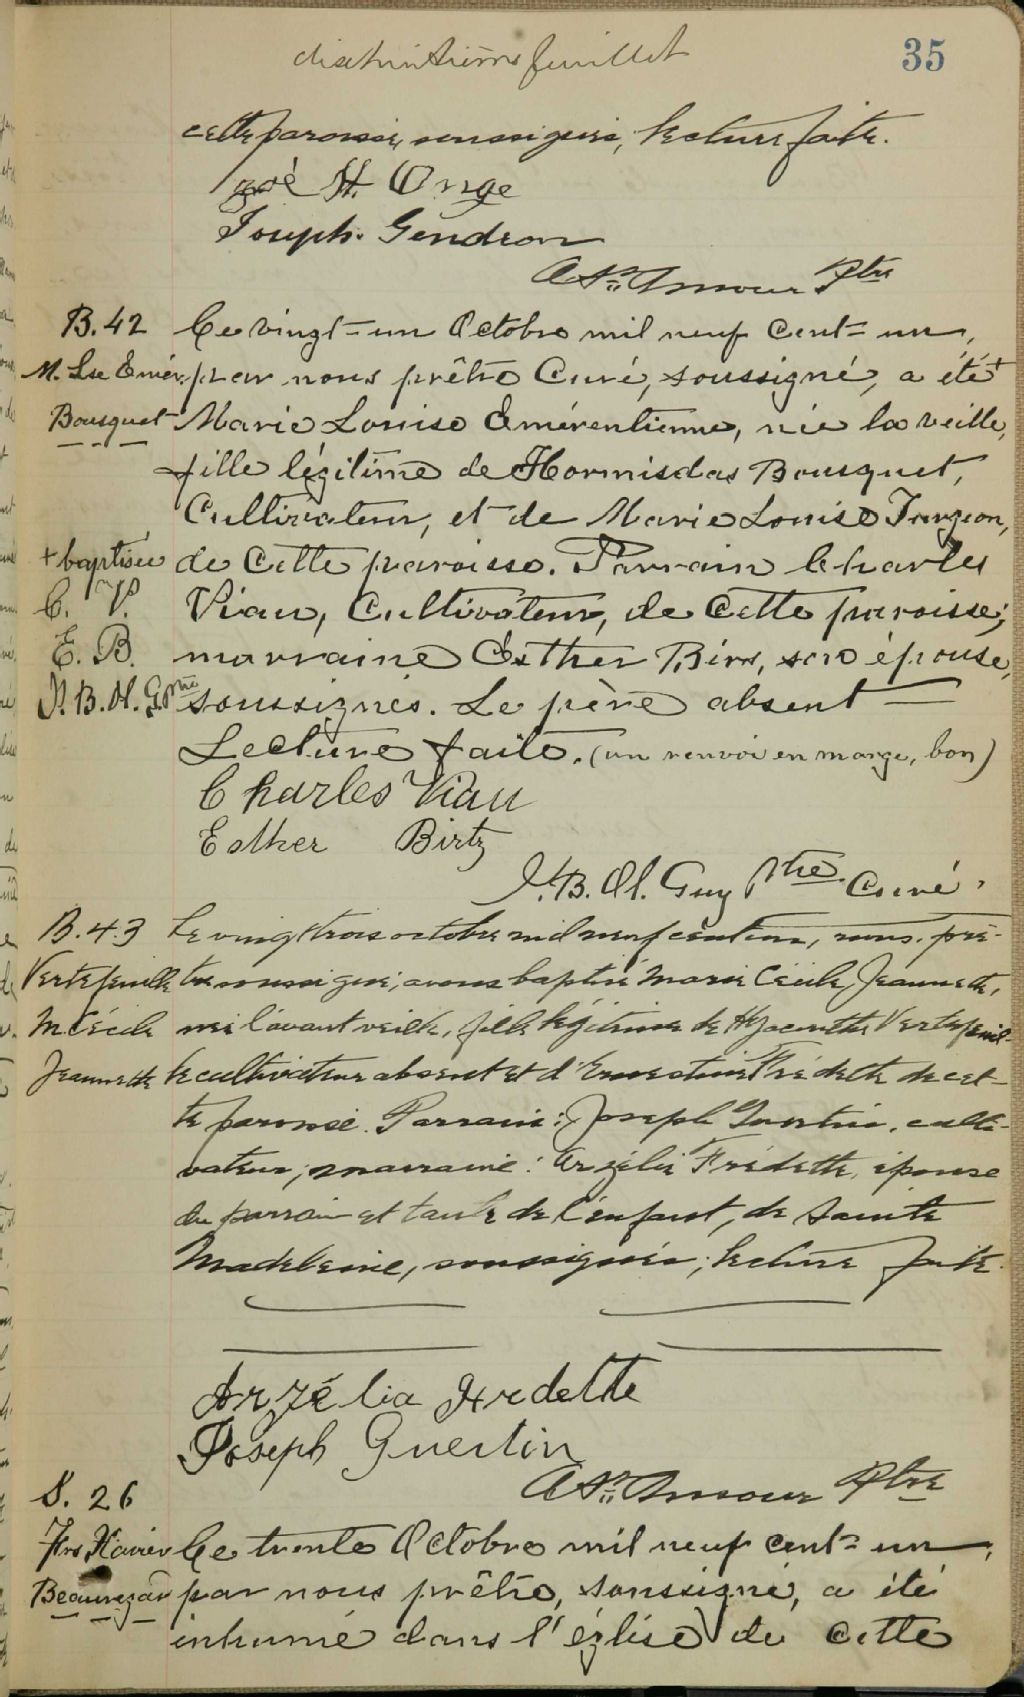 feuillet
35
cette paroisse, soussignés, lecture faite.
Zoé St. Onge
Joseph. Gendron
A St. Amour Ptre
B. 42 Ce vingt-un Octobre mil neuf cent-un,
M. Lse Emér. par nous prêtre Curé, soussigné, a été +
Bousquet Marie Louise Émérentienne, née la veille,
fille légitime de Hormisdas Bousquet,
Cultivateur, et de Marie Louise Turgeon,
+ baptisée de cette paroisse. Parrain Charles
C. V. Viau, Cultivateur, de cette paroisse;
E. B. marraine Esther Birs, son épouse,
J. B. H. G. Ptre soussignés. Le père absent —
Lecture faite. (un renvoi en marge, bon)
Charles Viau
Esther Birtz
J. B. H. Guy Ptre Curé.
B. 43 Le vingt trois octobre mil neuf cent un, nous, prê-
Vertefeuille tre soussigné, avons baptisé Marie Cécile, Jeannette,
M Cécile née l'avant veille, fille légitime de Hyacinthe Vertefeuil-
Jeannette le cultivateur absent et d'Ernestine Frédette de cet-
te paroisse. Parrain: Joseph Guertin, culti-
vateur, marraine: Arzélie Frédette, épouse
du parrain et tante de l'enfant, de Sainte
Madeleine, soussignés; lecture faite.
Arzélia Frdette
Joseph Guertin
A St. Amour Ptre
S. 26
Frs Xavier Ce trente Octobre mil neuf cent-un,
Beauregard par nous prêtre, soussigné, a été
inhumé dans l'église de cette